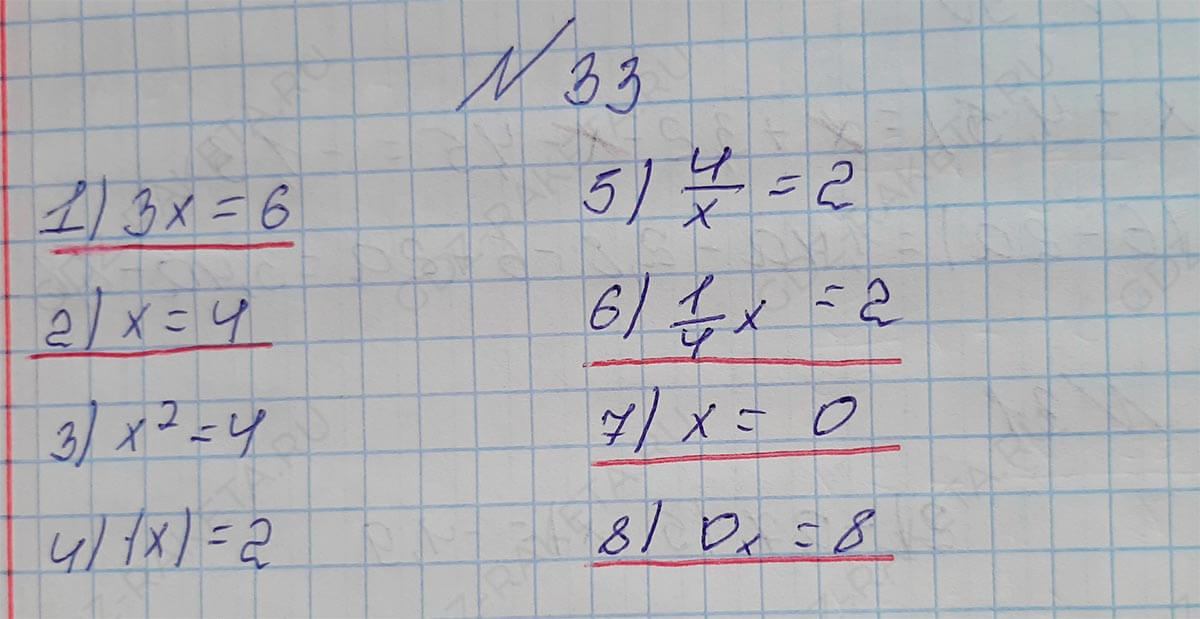 № 33
1) 3x = 6
2) x = 4
3) x² = 4
4) |x| = 2
5) 4/x = 2
6) 1/4 x = 2
7) x = 0
8) 0x = 8